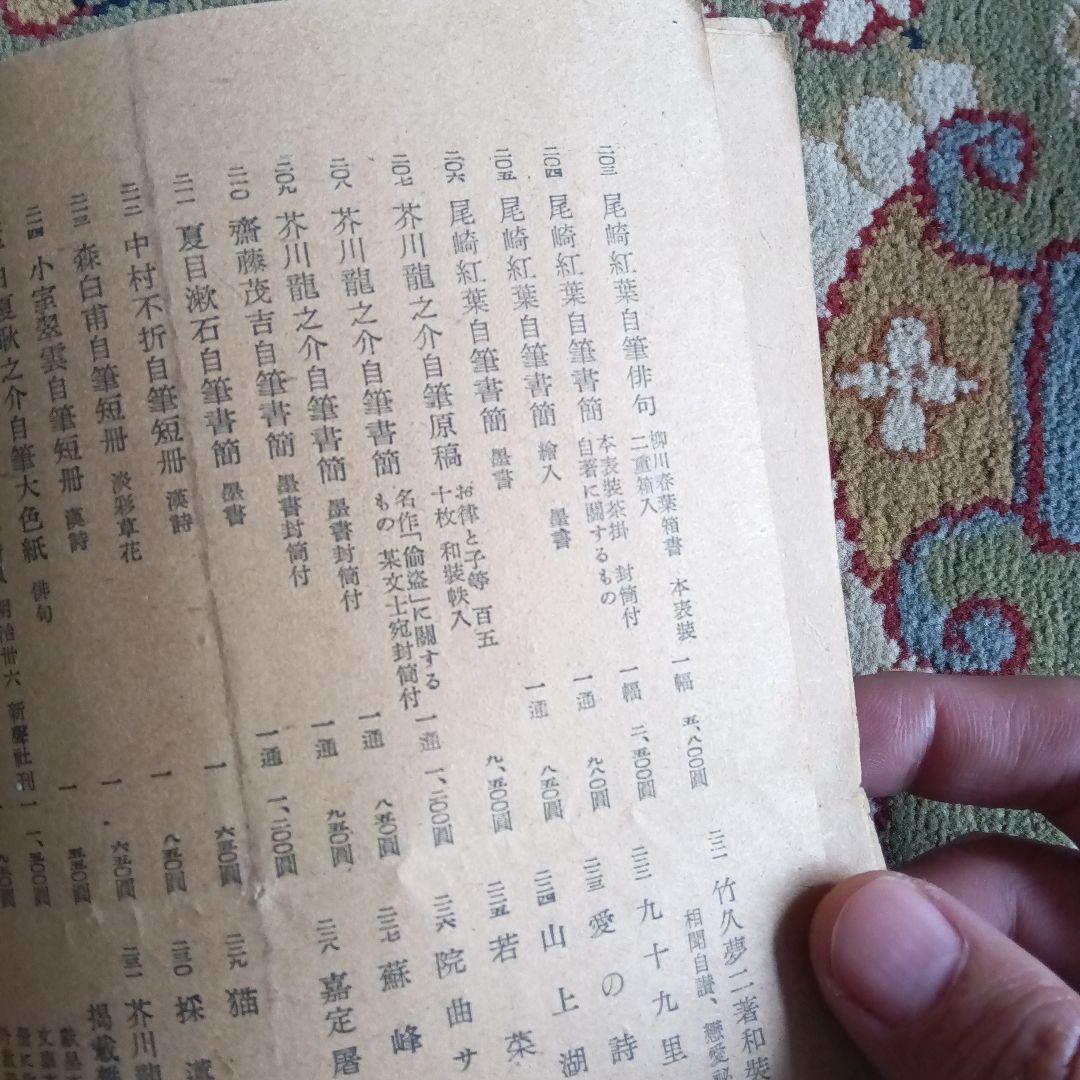 二〇三 尾崎紅葉自筆俳句 柳川春葉箱書 本表装 二重箱入 一幅 五、八〇〇圓
二〇四 尾崎紅葉自筆書簡 本表装茶掛 封筒付 自著に關するもの 一幅 二、五〇〇圓
二〇五 尾崎紅葉自筆書簡 繪入 墨書 一通 九八〇圓
二〇六 尾崎紅葉自筆書簡 墨書 一通 八五〇圓
二〇七 芥川龍之介自筆原稿 お律と子等 百五十枚 和裝帙入 九、五〇〇圓
二〇八 芥川龍之介自筆書簡 名作「偷盜」に關するもの 某文士宛封筒付 一通 一、二〇〇圓
二〇九 芥川龍之介自筆書簡 墨書封筒付 一通 八五〇圓
二一〇 齋藤茂吉自筆書簡 墨書封筒付 一通 九五〇圓
二一一 夏目漱石自筆書簡 墨書 一通 一、二〇〇圓
二一二 中村不折自筆短冊 漢詩 一 六五〇圓
二一三 森白甫自筆短冊 淡彩草花 一 八五〇圓
二一四 小室翠雲自筆短冊 漢詩 一 六五〇圓
夏耿之介自筆大色紙 俳句 一 五五〇圓
明治卅六 新聲社刊 一 一、五〇〇圓
二二一 竹久夢二著和裝
相聞自讃、戀愛祕
二二二 九十九里
二二三 愛の詩
二二四 山上湖
二二五 若菜
二二六 院曲サ
二二七 蘇峰
二二八 嘉定屠
二二九 猫
二三〇 採
二三一 芥川龍
掲載